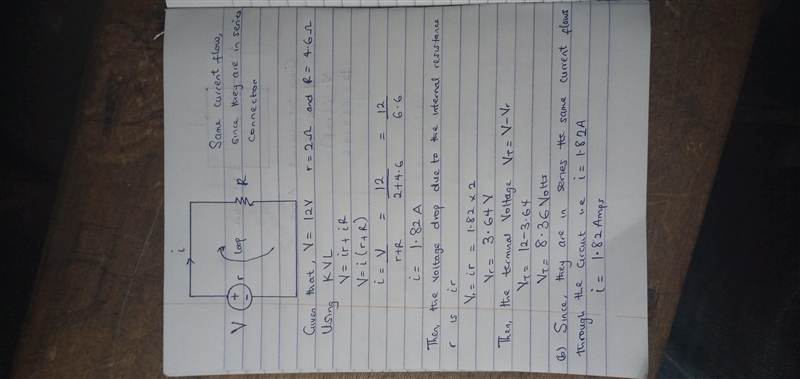 Same current flow,
since they are in series
connection
i
V
+
-
r
loop
R
Given that, V = 12V r = 2Ω and R = 4.6Ω
Using KVL
V = ir + iR
V = i(r+R)
i = V/r+R = 12/2+4.6 = 12/6.6
i = 1.82A
Then, the voltage drop due to the internal resistance
r is ir
Vr = ir = 1.82 x 2
Vr = 3.64 V
Then, the terminal voltage VT = V-Vr
VT = 12-3.64
VT = 8.36 Volts
(b) Since, they are in series the same current flows
through the circuit i.e i = 1.82A
i = 1.82 Amps